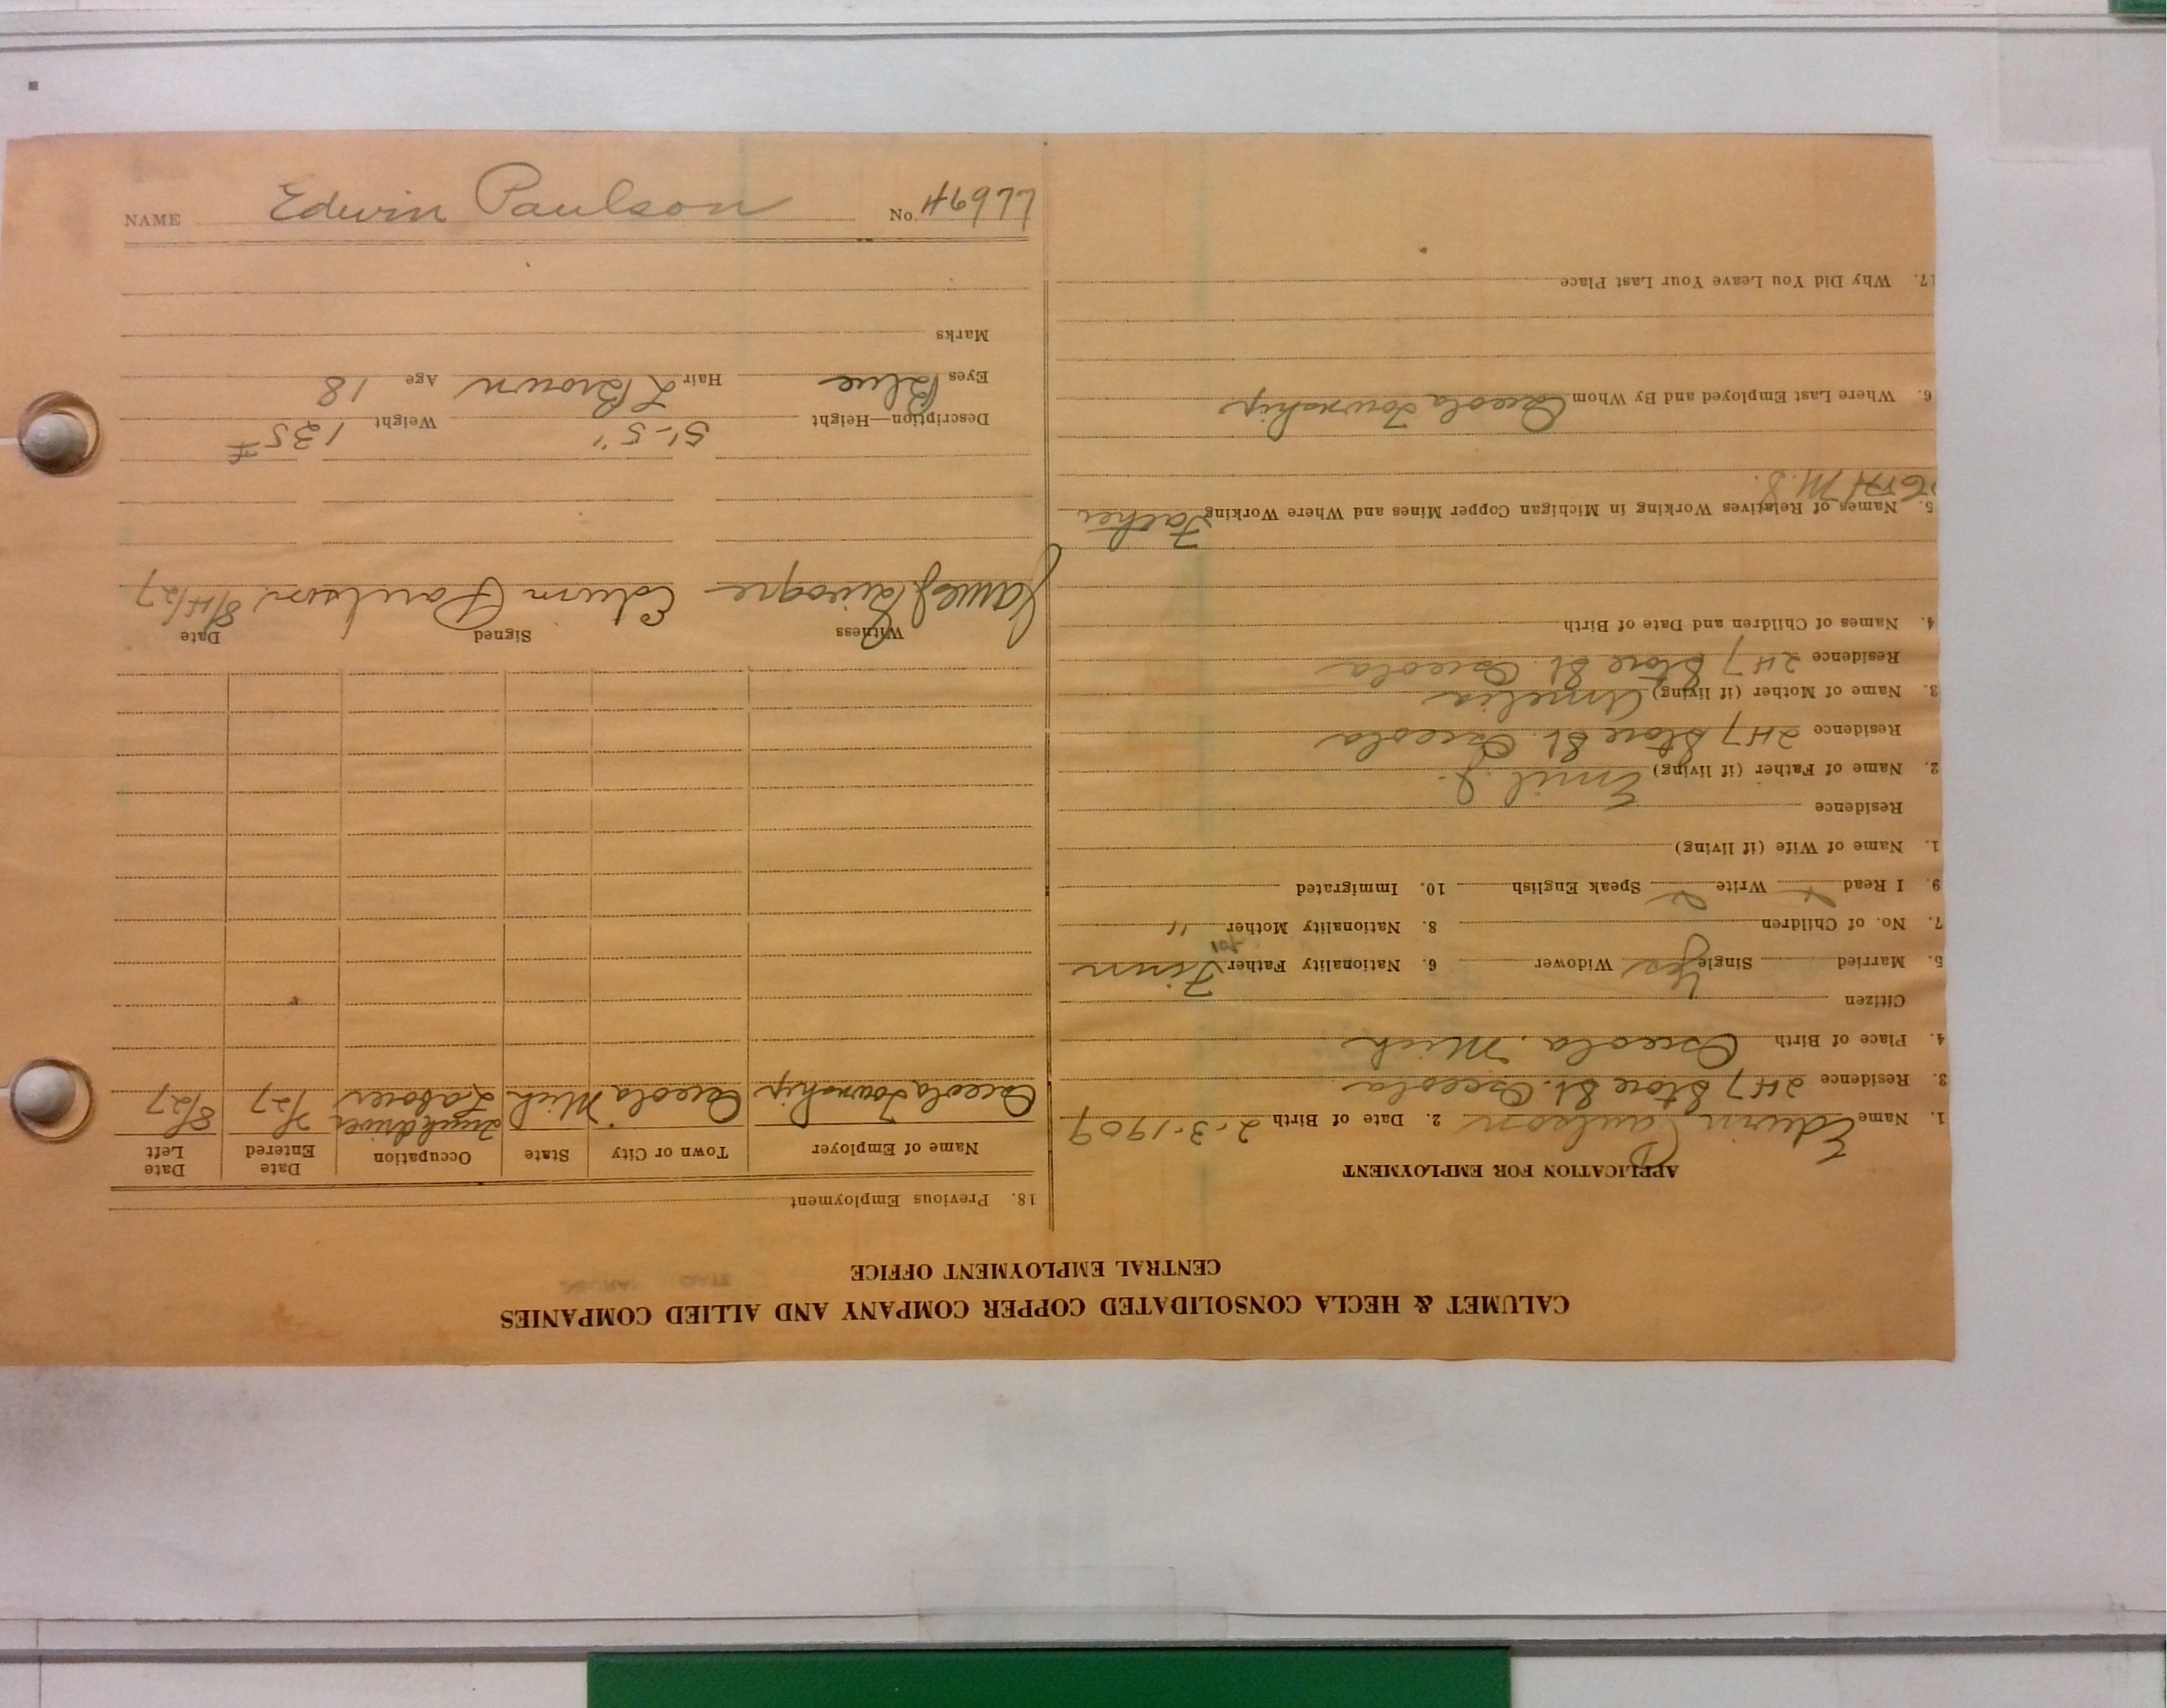 CALUMET & HECLA CONSOLIDATED COPPER COMPANY AND ALLIED COMPANIES
CENTRAL EMPLOYMENT OFFICE
APPLICATION FOR EMPLOYMENT
1. Name Edwin Paulson 2. Date of Birth 2-3-1909
3. Residence 247 Store St. Osceola
4. Place of Birth Osceola Mich
Citizen
5. Married Single Yes Widower 6. Nationality Father Finn
7. No. of Children 8. Nationality Mother "
9. I Read Write Speak English 10. Immigrated
1. Name of Wife (if living)
Residence
2. Name of Father (if living) Emil J.
Residence 247 Store St. Osceola
3. Name of Mother (if living) Amelia
Residence 247 Store St. Osceola
4. Names of Children and Date of Birth
5. Names of Relatives Working in Michigan Copper Mines and Where Working Father
6. Where Last Employed and By Whom Osceola Township
17. Why Did You Leave Your Last Place
18. Previous Employment
Name of Employer Town or City State Occupation Date Entered Date Left
Osceola Township Osceola Mich Truck driver Laborer 7/27 8/27
Witness Signed Date
Edwin Paulson 8/4/27
Description—Height 5'-5" Weight 135 #
Eyes Blue Hair L Brown Age 18
Marks
NAME Edwin Paulson No. 46977